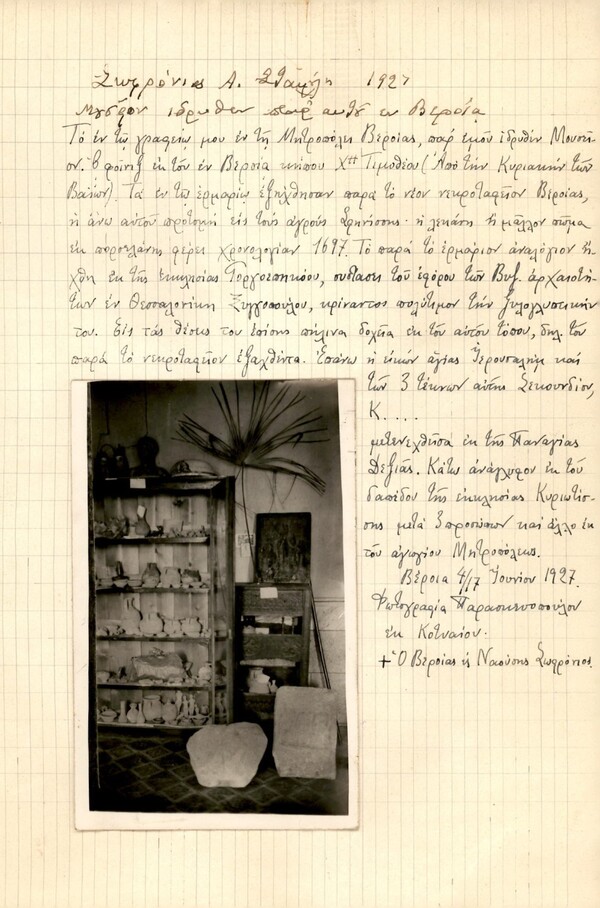 Σωφρόνιος Α. Σταμούλη 1927
Μουσεῖον ἱδρυθεν παρ' αυτοῦ εν Βερροίᾳ
Τὸ ἐν τῷ γραφείῳ μου ἐν τῇ Μητροπόλει Βεροίας, παρ' ἐμοῦ ἱδρυθὲν Μουσεῖ-
ον. Ὁ φοῖνιξ ἐκ τοῦ ἐν Βεροίᾳ κήπου Χ Τιμοθέου (Ἀπὸ τὴν Κυριακὴν τῶν
Βαΐων). Τὰ ἐν τῷ ἑρμαρίῳ ἐξήχθησαν παρὰ τὸ νέον νεκροταφεῖον Βεροίας,
ἡ ἄνω αὐτοῦ προτομὴ εἰς τοὺς ἀγροὺς ἡ λεκάνη ἢ μᾶλλον πῶμα
ἐκ πορσελάνης φέρει χρονολογίαν 1697. Τὸ παρὰ τὸ ἑρμάριον ἀναλόγιον ἤ-
χθη ἐκ τῆς ἐκκλησίας Γοργοεπηκόου, συστάσει τοῦ ἐφόρου τῶν Βυζ. ἀρχαιοτή-
των ἐν Θεσσαλονίκῃ Ξυγγοπούλου, κρίναντος πολύτιμον τὴν ξυλογλυπτικήν
του. Εἰς τὰς θέσεις του ἐπίσης πήλινα δοχεῖα ἐκ τοῦ αὐτοῦ τόπου, δηλ. τοῦ
παρὰ τὸ νεκροταφεῖον ἐξαχθέντα. Ἐπάνω ἡ εἰκὼν ἁγίας Ἱερουσαλὴμ καὶ
τῶν 3 τέκνων αὐτῆς Σεκούνδου,
Κ....
μετενεχθεῖσα ἐκ τῆς Παναγίας
Δεξιᾶς. Κάτω ἀνάγλυφον ἐκ τοῦ
δαπέδου τῆς ἐκκλησίας Κυριωτίσ-
σης μετὰ 3 προσώπων καὶ ἄλλο ἐκ
τοῦ ἁγιογίου Μητροπόλεως.
Βέροια 4/17 Ἰουνίου 1927.
Φωτογραφία Παρασκευοπούλου
ἐκ Κοτυαίου.
+ Ὁ Βεροίας & Ναούσης Σωφρόνιος.